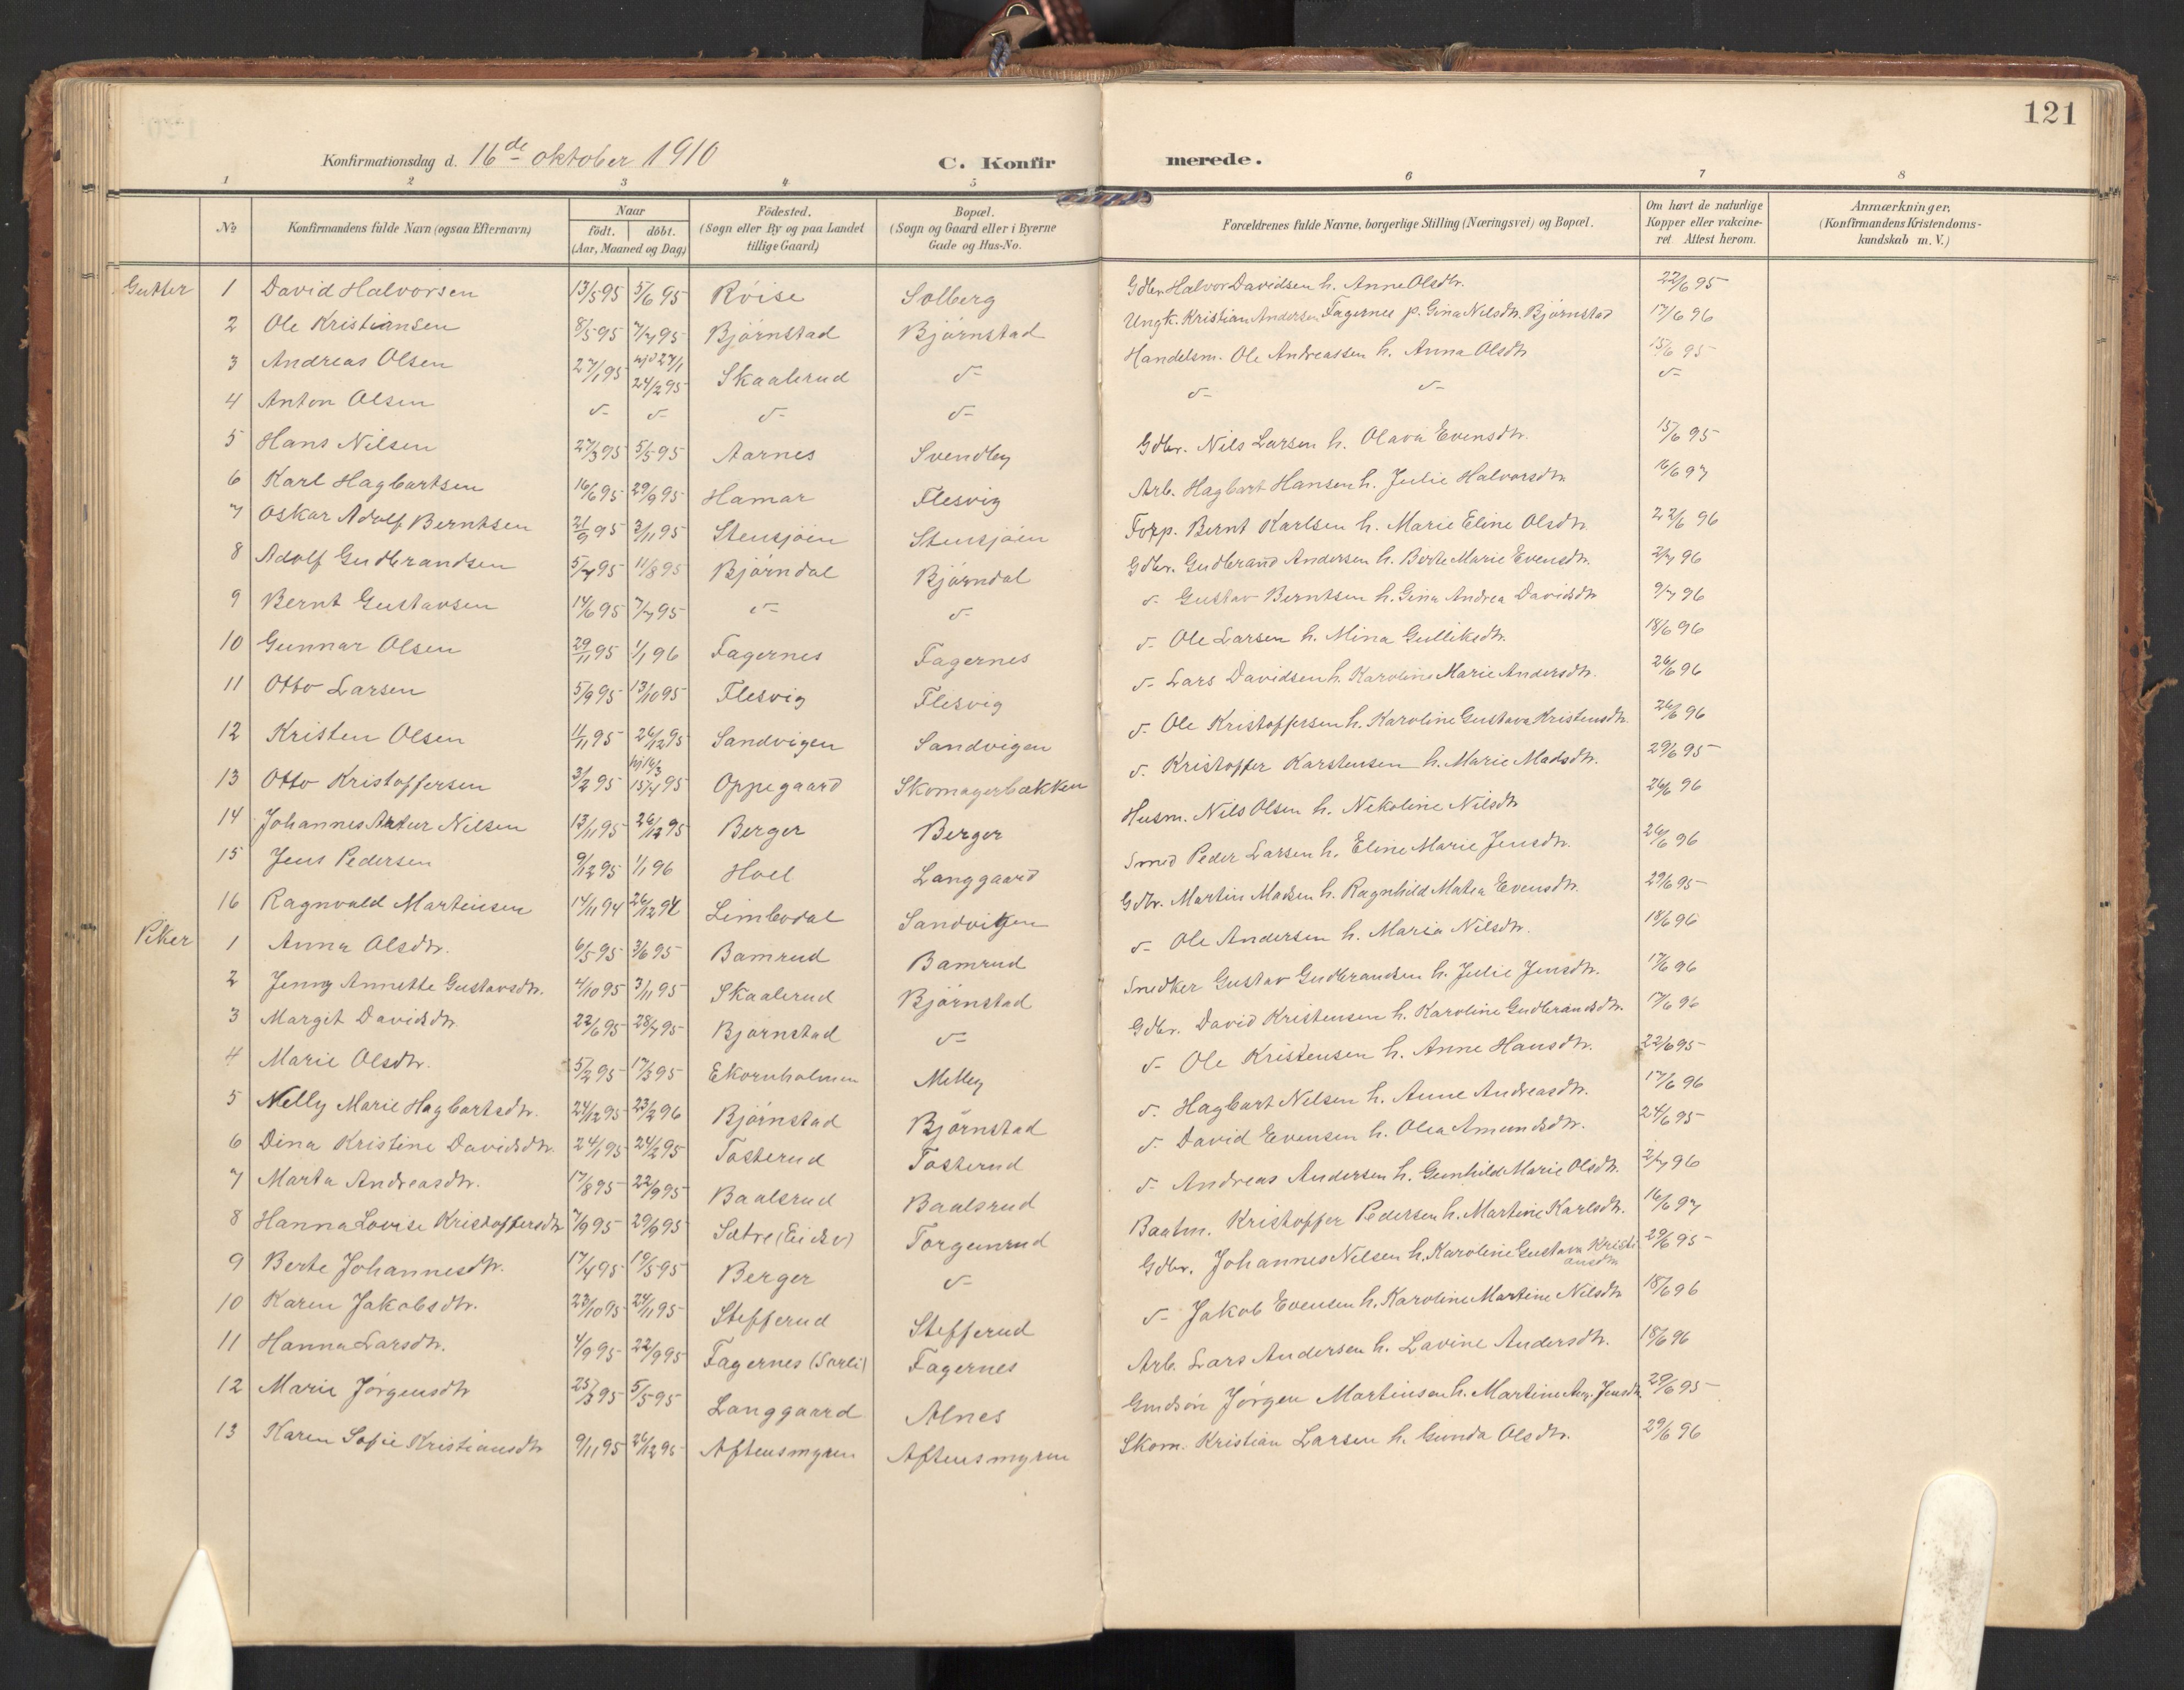 121
Konfirmationsdag d. 16de oktober 1910
C. Konfirmerede.
1 2 3 4 5 6 7 8
No
Konfirmandens fulde Navn (ogsaa Efternavn)
Naar
født. | döbt.
(Aar, Maaned og Dag)
Födested.
(Sogn eller By og paa Landet
tillige Gaard)
Bopæl.
(Sogn og Gaard eller i Byerne
Gade og Hus-No.
Forældrenes fulde Navne, borgerlige Stilling (Næringsvei) og Bopæl.
Om havt de naturlige
Kopper eller vakcine-
ret. Attest herom.
Anmærkninger,
(Konfirmandens Kristendoms-
kundskab m. V.)
Gutter 1 David Halvorsen 13/5 95 5/6 95 Röise Solberg Gdbr. Halvor Davidsen h. Anne Olsdtr. 22/6 95
2 Ole Kristiansen 8/5 95 7/7 95 Björnstad Björnstad Ungk. Kristian Andersen Fagernes p. Gina Nilsdtr. Björnstad 17/6 96
3 Andreas Olsen 27/1 95 hjd 27/1 24/2 95 Skaalerud d- Handelsm. Ole Andreassen h. Anna Olsdtr 15/6 95
4 Anton Olsen d- d- d- d- d- d- d-
5 Hans Nilsen 27/3 95 5/5 95 Aarnes Svendby Gdbr. Nils Larsen h. Olava Evensdtr. 15/6 95
6 Karl Hagbartsen 16/6 95 29/9 95 Hamar Flesvig Arb. Hagbart Hansen h. Julie Halvorsdtr. 16/6 97
7 Oskar Adolf Berntsen 21/9 95 3/11 95 Stensjöen Stensjöen Forp. Bernt Karlsen h. Marie Eline Olsdtr. 22/6 96
8 Adolf Gudbrandsen 5/7 95 11/8 95 Björndal Björndal Gdbr. Gudbrand Andersen h. Berte Marie Evensdtr. 2/7 96
9 Bernt Gustavsen 14/6 95 7/7 95 d- d- d- Gustav Berntsen h. Gina Andrea Davidsdtr 9/7 96
10 Gunnar Olsen 29/11 95 1/1 96 Fagernes Fagernes d- Ole Larsen h. Mina Gulliksdtr. 18/6 96
11 Otto Larsen 5/9 95 13/10 95 Flesvig Flesvig d- Lars Davidsen h. Karoline Marie Andersdtr. 26/6 96
12 Kristen Olsen 11/11 95 26/12 95 Sandvigen Sandvigen d- Ole Kristoffersen h. Karoline Gustava Kristensdtr. 26/6 96
13 Otto Kristoffersen 3/2 95 hj 16/3 15/4 95 Oppegaard Skomagerbakken d- Kristoffer Karstensen h. Marie Madsdtr. 29/6 95
14 Johannes Artur Nilsen 13/11 95 26/12 95 Berger Berger Husm. Nils Olsen h. Nekoline Nilsdtr 26/6 96
15 Jens Pedersen 9/12 95 1/1 96 Hoel Langgaard Smed Peder Larsen h. Eline Marie Jensdtr. 26/6 96
16 Ragnvald Martinsen 14/11 94 26/12 94 Limbodal Sandvigen Gdbr. Martin Madsen h. Ragnhild Matea Evensdtr. 29/6 95
Piker 1 Anna Olsdtr. 6/5 95 3/6 95 Bamrud Bamrud d- Ole Andersen h. Maria Nilsdtr. 18/6 96
2 Jenny Annette Gustavsdtr. 4/10 95 3/11 95 Skaalerud Björnstad Snedker Gustav Gudbrandsen h. Julie Jensdtr. 17/6 96
3 Margit Davidsdtr. 22/6 95 28/7 95 Bjørnstad d- Gdbr. David Kristensen h. Karoline Gudbrandsdtr. 17/6 96
4 Marie Olsdtr. 5/2 95 17/3 95 Ekornholmen Melby d- Ole Kristensen h. Anne Hansdtr. 22/6 95
5 Nelly Marie Hagbartsdtr. 24/12 95 23/2 96 Björnstad Björnstad d- Hagbart Nilsen h. Anne Andreasdtr. 17/6 96
6 Dina Kristine Davidsdtr. 24/1 95 24/2 95 Tosterud Tosterud d- David Evensen h. Olea Amundsdtr. 24/6 95
7 Marta Andreasdtr. 17/8 95 22/9 95 Baalsrud Baalsrud d- Andreas Andersen h. Gunhild Marie Olsdtr. 2/7 96
8 Hanna Lovise Kristoffersdtr 7/9 95 29/9 95 Sætre (Eidsv) Torgunrud Baatm. Kristoffer Pedersen h. Martine Karlsdtr. 16/6 97
9 Berte Johannesdtr. 17/4 95 19/5 95 Berger d- Gdbr. Johannes Nilsen h. Karoline Gustava Kristiansdtr 29/6 95
10 Karen Jakobsdtr. 23/10 95 24/11 95 Stefferud Stefferud d- Jakob Evensen h. Karoline Martine Nilsdtr 18/6 96
11 Hanna Larsdtr. 4/9 95 22/9 95 Fagernes (Sorli) Fagernes Arb. Lars Andersen h. Lavine Andersdtr. 18/6 96
12 Marie Jørgensdtr 25/3 95 5/5 95 Langgaard Alnes Jørgen Martinsen h. Martine Jensdtr. 29/6 95
13 Karen Sofie Kristiansdtr 9/11 95 26/12 95 Aftensmyren Aftensmyren Skom. Kristian Larsen h. Gunda Olsdtr. 29/6 96